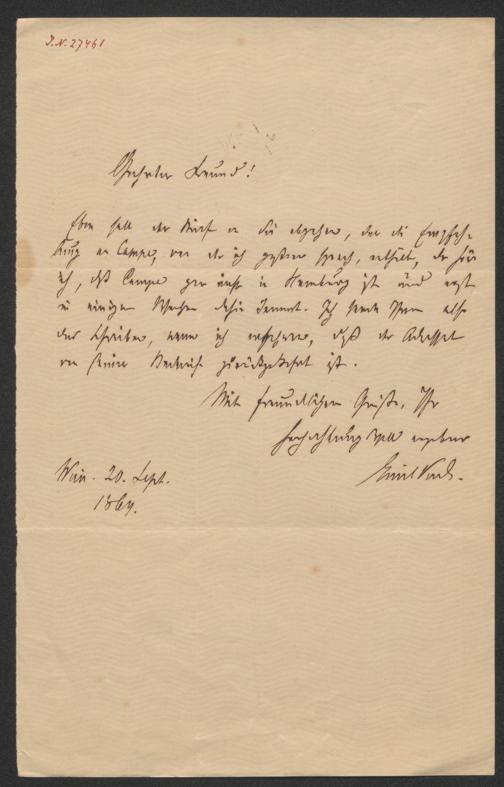 J.N. 27461
Geehrter Freund!
Eben soll der Brief an Sie abgehen, der die Empfeh-
lung an Campe, von der ich gestern sprach, enthielt, da höre
ich, daß Campe gar nicht in Hamburg ist und erst
in einigen Wochen dahin kommt. Ich sende Ihnen also
das Schreiben, wenn ich erfahre, daß der Adressat
von seiner zurückgekehrt ist.
Mit freundlichem Gruße, Ihr
hochachtungsvoll ergebener
Emil
Wien. 20. Sept.
1864.